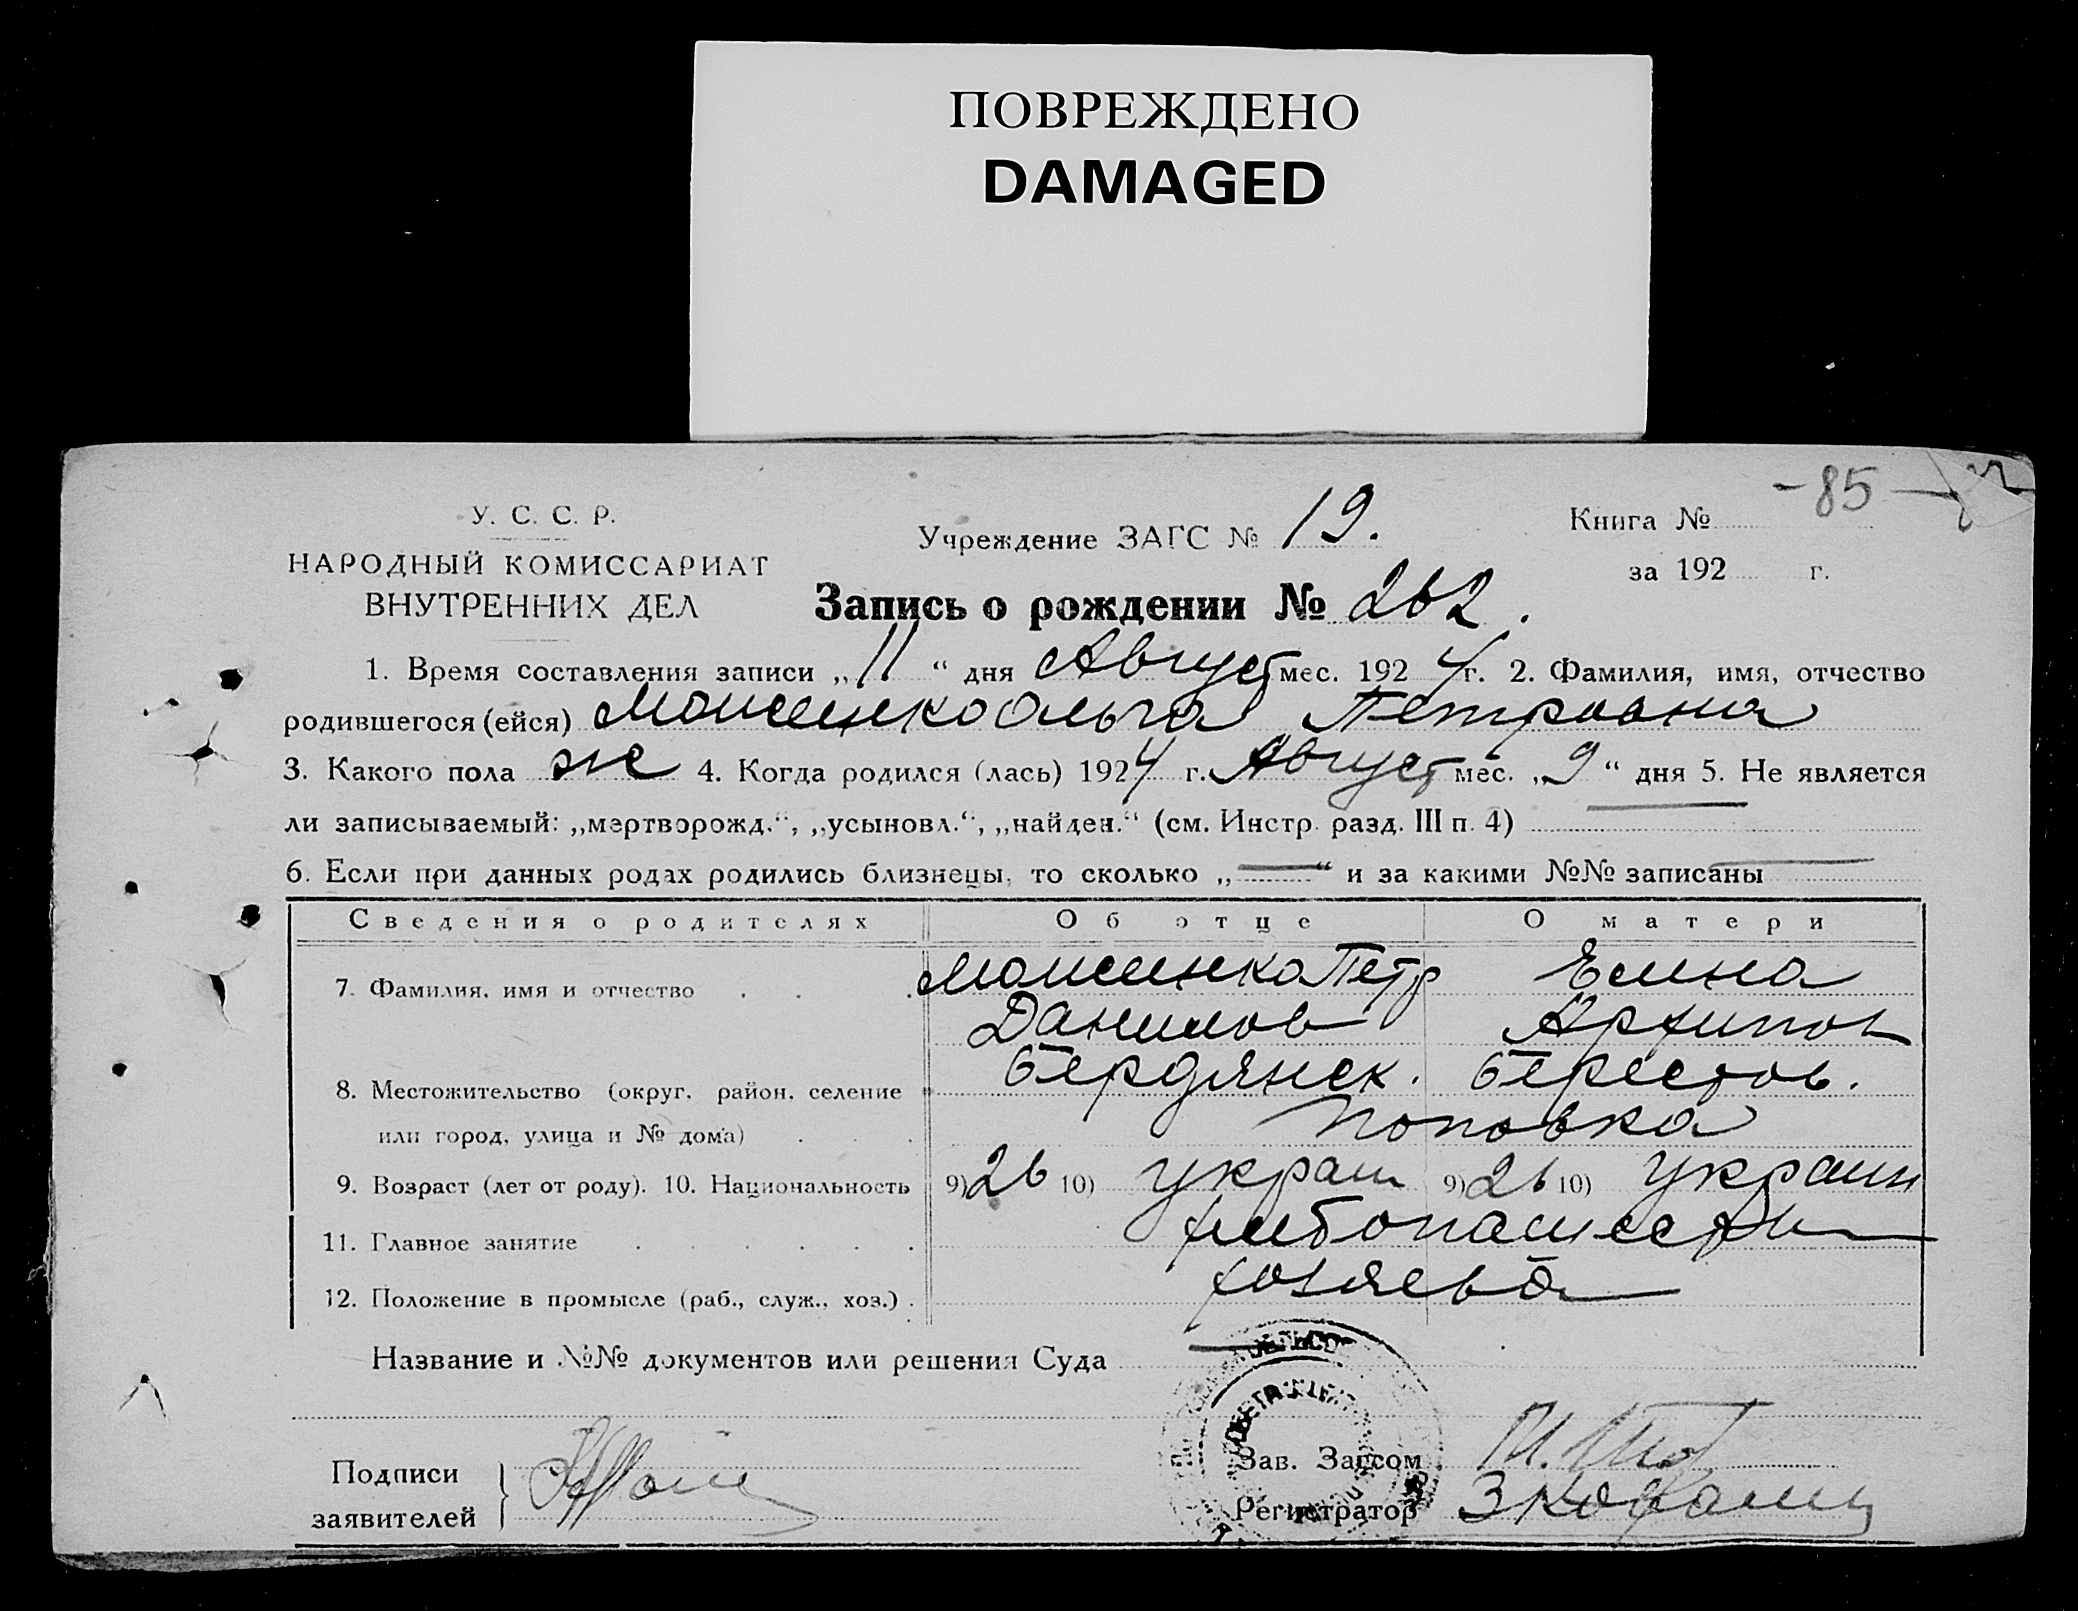 ПОВРЕЖДЕНО
DAMAGED
- 85 -
У. С. С. Р.
НАРОДНЫЙ КОМИССАРИАТ
ВНУТРЕННИХ ДЕЛ
Учреждение ЗАГС № 19.
Книга №
за 192 г.
Запись о рождении № 262.
1. Время составления записи „11“ дня Август мес. 1924 г. 2. Фамилия, имя, отчество
родившегося (ейся) Моисеенко Ольга Петровна
3. Какого пола же 4. Когда родился (лась) 1924 г. Август мес. „9“ дня 5. Не является
ли записываемый: „мертворожд.“, „усыновл.“, „найден.“ (см. Инстр. разд. III п. 4)
6. Если при данных родах родились близнецы, то сколько „—“ и за какими №№ записаны —
Сведения о родителях Об отце О матери
7. Фамилия, имя и отчество . . . Моисеенко Петр Елена
Данилов Архипов
8. Местожительство (округ, район, селение Бердянск. Берестов.
или город, улица и № дома) . . . Поповка
9. Возраст (лет от роду). 10. Национальность 9) 26 10) украин 9) 26 10) украин
11. Главное занятие . . . . . . хлебопашество
12. Положение в промысле (раб., служ., хоз.) . хозяева
Название и №№ документов или решения Суда —
Подписи
заявителей
Зав. Загсом
Регистратор